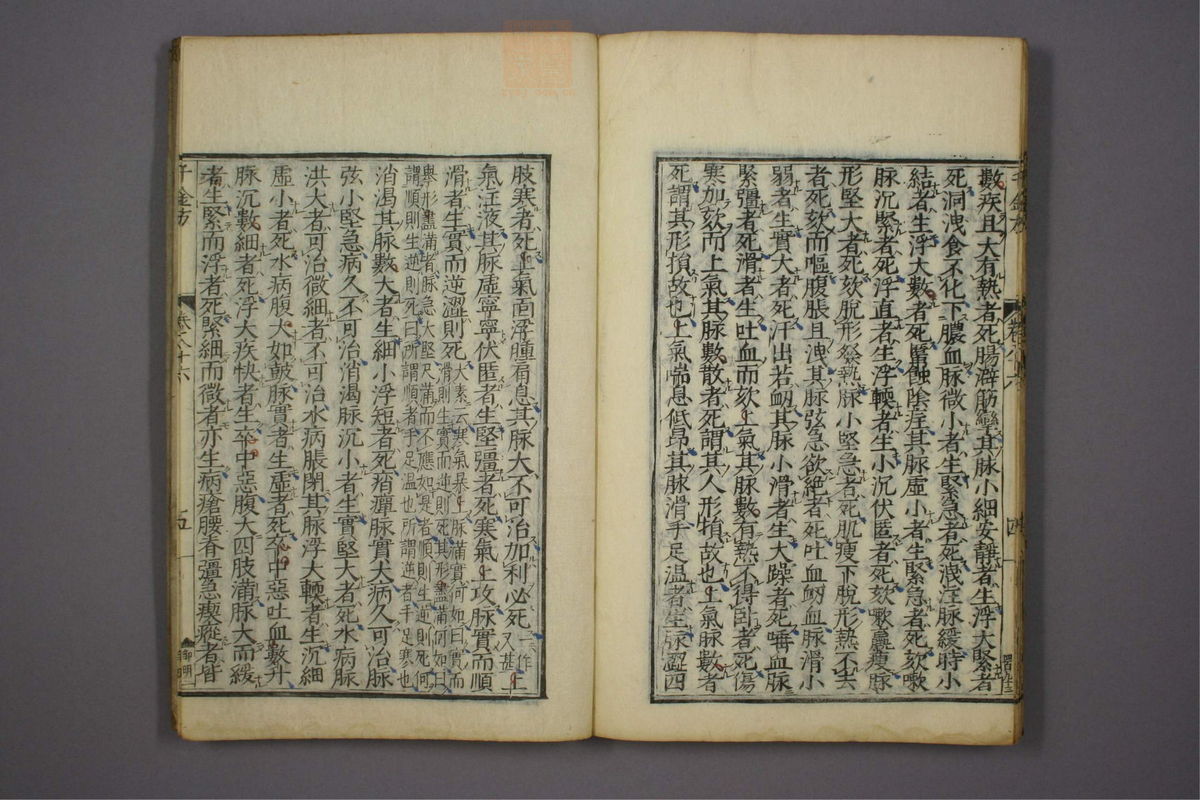 數疾且大有熱者死腸澼筋攣其脉小細安靜者生浮大緊者
死洞洩食不化下膿血脉微小者生緊急者死洩注脉緩時小
結者生浮大數者死䘌蝕陰疘其脉虛小者生緊急者死欬嗽
脉沉緊者死浮直者生浮輭者生小沉伏匿者死欬嗽羸瘦脉
形堅大者死欬脫形發熱脉小堅急者死肌瘦下脫形熱不去
者死欬而嘔腹脹且洩其脉弦急欲絕者死吐血衂血脉滑小
弱者生實大者死汗出若衂其脉小滑者生大躁者死唾血脉
緊彊者死滑者生吐血而欬上氣其脉數有熱不得臥者死傷
寒加欬而上氣其脉數散者死謂其人形損故也上氣脉數者
死謂其形損故也上氣喘息低昂其脉滑手足溫者生脉澀四
肢寒者死上氣面浮腫肩息其脉大不可治加利必死一作又甚上
氣注液其脉虛寧寧伏匿者生堅彊者死寒氣上攻脉實而順
滑者生實而逆澀則死太素云寒氣暴上脉滿實何如曰實而
滑則生實而逆則死其形盡滿何如曰
舉形盡滿者脉急大堅尺滿而不應如是者順則生逆則死何
謂順則生逆則死曰所謂順者手足溫也所謂逆者手足寒也
消渴其脉數大者生細小浮短者死痟癉脉實大病久可治脉
弦小堅急病久不可治消渴脉沉小者生實堅大者死水病脉
洪大者可治微細者不可治水病脹閉其脉浮大輭者生沉細
虛小者死水病腹大如皷脉實者生虛者死卒中惡吐血數升
脉沉數細者死浮大疾快者生卒中惡腹大四肢滿脉大而緩
者生緊而浮者死緊細而微者亦生病瘡腰脊彊急瘈瘲者皆
千金方
卷二十八
四
千金方
五